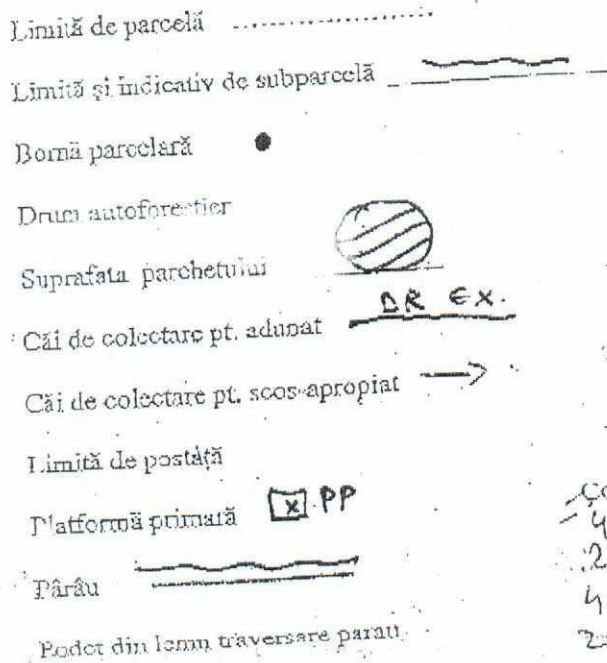 Limită de parcelă ....................
Limită şi indicativ de subparcelă
Bornă parcelară
Drum autoforestier
Suprafata parchetului
Căi de colectare pt. adunat DR EX.
Căi de colectare pt. scos-apropiat
Limită de postăţă
Platformă primară x PP
Pârâu
Podet din lemn traversare parau
4
2
4
2